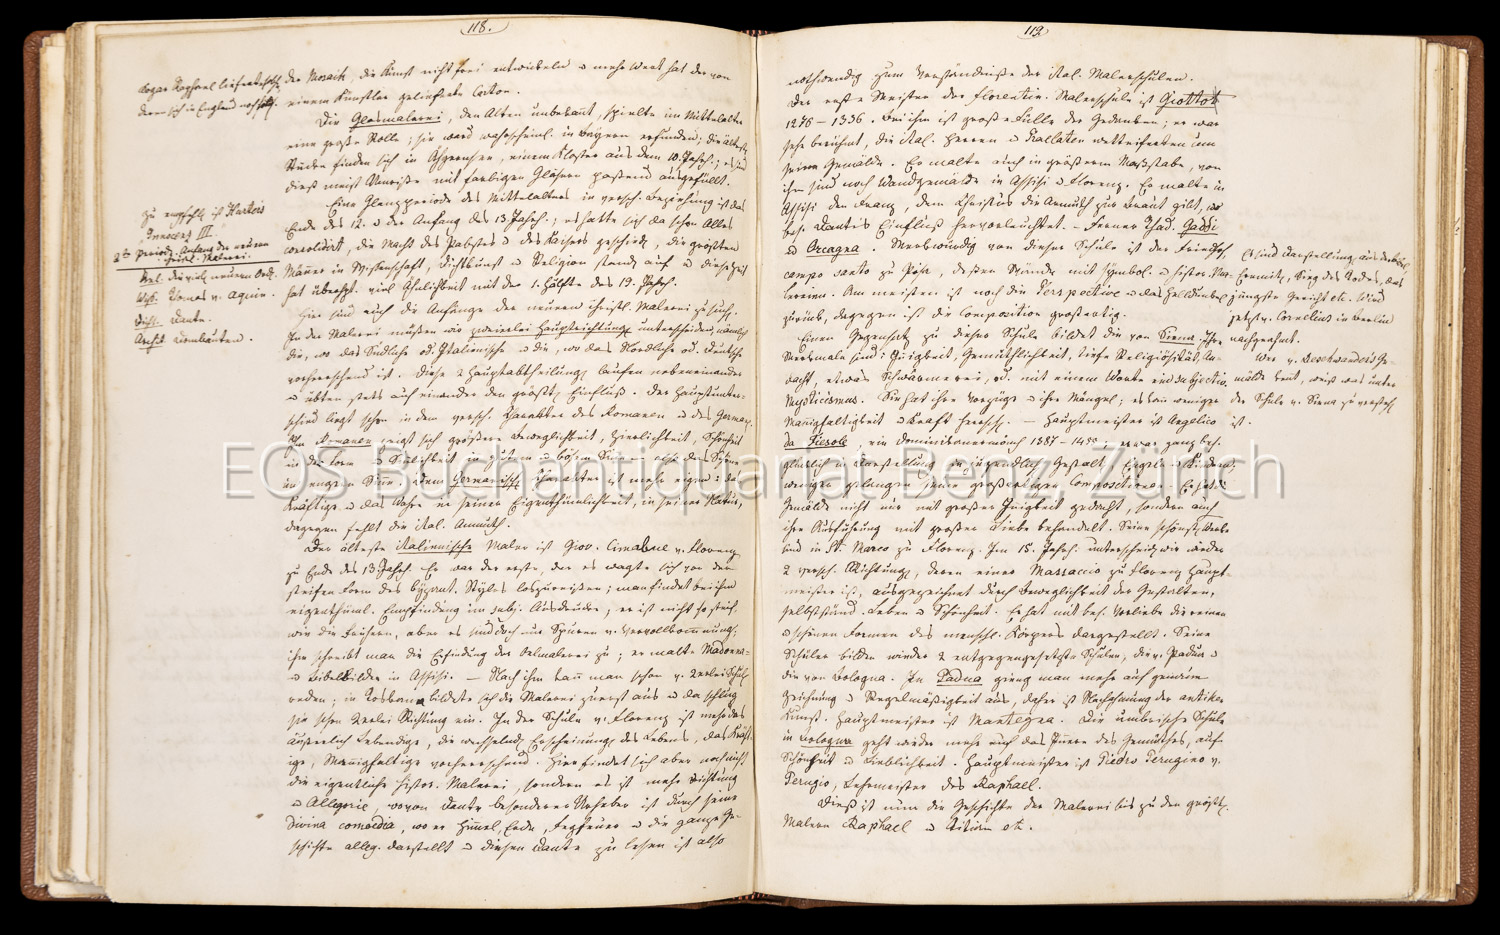 118.
der Mosaik, die Kunst nicht frei entwickeln u mehr Wert hat der von
einem Künstler gelieferte Carton.
Die Glasmalerei, den Alten unbekannt, spielte im Mittelalter
eine große Rolle; sie ward wahrscheinl. in Bayern erfunden; die ältesten
finden sich in Tegernsee, einem Kloster aus dem 10. Jahrh.;
dieß meist Umriße mit farbigen Gläsern paßend ausgefüllt.
Eine Glanzperiode des Mittelalters in versch. Beziehung ist das
Ende des 12. u der Anfang des 13. Jahrh.; es hatte sich da schon Alles
consolidirt, die Macht des Pabstes u des Kaisers geschied., die größten
Männer in Wissenschaft, Dichtkunst u Religion stand. auf u diese Zeit
hat überhpt. viel Ähnlichkeit mit der 1. Hälfte des 19. Jahrh.
Hier sind auch die Anfänge der neuern christl. Malerei zu such.
In der Malerei müßen wir zweierlei Hauptrichtung. unterscheiden, nämlich
die, wo das Südliche od. Italienische u die, wo das Nordliche od. Deutsche
vorherrschend ist. Diese 2 Hauptabtheilung. laufen nebeneinander
u übten stets auf einander den größt. Einfluß. Der Hauptunter-
schied liegt schon in dem versch. Charakter des Romanen u des German.
Im Romanen zeigt sich größere Beweglichkeit, Zierlichkeit, Schönheit
in der Form u Sinnlichkeit in gutem u bösem Sinne, also das Schöne
im engern Sinn; dem Germanisch. Charakter ist mehr eigen: das
Kräftige u das Wahre in seiner Eigenthümlichkeit, in seiner Natur,
dagegen fehlt die ital. Anmuth.
Der älteste italienische Maler ist Giov. Cimabue v. Florenz
zu Ende des 13 Jahrh. Er war der erste, der es wagte sich von der
steifen Form des byzant. Styles loszureißen; man findet bei ihm
eigenthüml. Empfindung im subj. Ausdrucke, er ist nicht so steif
wie die Frühern, aber es sind doch nur Spuren v. Vervollkommnung;
ihm schreibt man die Erfindung der Oelmalerei zu; er malte Madonna-
u Bibelbilder in Assisi. — Nach ihm kann man schon v. 2erlei Schul.
reden; in Toskana bildete sich die Malerei zuerst aus u da schlug
sie schon 2erlei Richtung ein. In der Schule v. Florenz ist mehr das
äußerlich Lebendige, die wechselnd. Erscheinung. des Lebens, das Kräft-
ige, Mannigfaltige vorherrschend. Hier findet sich aber noch nicht
die eigentliche histor. Malerei, sondern es ist mehr Dichtung
u Allegorie, wovon Dante besonderer Urheber ist durch seine
Divina comoedia, wo er Himmel, Erde, Fegfeuer u die ganze Ge-
schichte alleg. darstellt u diesen Dante zu lesen ist also
Sogar Raphael lieferte solche,
deren sich in England noch
zu empfehl. ist Hurters
"Innocens III."
2te Periode: Anfang der neuern
christl. Malerei.
Rel. die viel. neuern Ord.
Wiß. Tomas v. Aquin.
Dicht. Dante.
Archit. Dombauten.
119
nothwendig zum Verständniße der ital. Malerschulen.
Der erste Meister der florentin. Malerschule ist Giotto
1276 – 1336. Bei ihm ist große Fülle der Gedanken; er war
sehr berühmt, die ital. Herren u Prälaten wetteiferten um
seine Gemälde. Er malte auch in größerm Maßstabe, von
ihm sind noch Wandgemälde in Assisi u Florenz. Er malte in
Assisi den Franz, dem Christus die Armuth zur Braut gibt, wo
bes. Dante's Einfluß hervorleuchtet. — Ferner Thad. Gaddi
u Orcagna. Merkwürdig von dieser Schule ist der Friedhof,
campo santo zu Pisa, deßen Wände mit symbol. u histor. Ma-
lereien. Am meisten ist noch die Perspective u das Helldunkel
zurück, dagegen ist die Composition großartig.
Einen Gegensatz zu dieser Schule bildet die von Siena. Ihre
Merkmale sind: Innigkeit, Gemüthlichkeit, tiefe Religiösität, An-
dacht, etwas Schwärmerei, od. mit einem Worte ein subjectiv.
Mysticismus. Sie hat ihre Vorzüge u ihre Mängel; es kann weniger
Mannigfaltigkeit u Kraft herrsch. — Hauptmeister ist Angelico
da Fiesole, ein Dominikanermönch 1387 – 1455, er war ganz bes.
glücklich in Darstellung v. jugendlich. Gestalt., Engeln u Kindern;
weniger gelangen ihm großartigere Compositionen. Er hat die
Gemälde nicht nur mit großer Innigkeit gedacht, sondern auch
ihre Ausführung mit großer Liebe behandelt. Seine schönst. Werke
sind in St. Marco zu Florenz. Im 15. Jahrh. unterscheid. wir wieder
2 versch. Richtung., deren einer Massaccio zu Florenz Haupt-
meister ist, ausgezeichnet durch Beweglichkeit der Gestalten,
selbstständ. Leben u Schönheit. Er hat mit bes. Vorliebe die reinen
u schönen Formen des menschl. Körpers dargestellt. Seine
Schüler bilden wieder 2 entgegengesetzte Schulen, die v. Padua u
die von Bologna. In Padua gieng man mehr auf genaue
Zeichnung u Regelmäßigkeit aus, daher ist Nachahmung der antiken
Kunst. Hauptmeister ist Mantegna. Die umbrische Schule
in Bologna geht wieder mehr auf das Innere des Gemüthes, auf
Schönheit u Lieblichkeit. Hauptmeister ist Piedro Perugino v.
Perugio, Lehrmeister des Raphael.
Dieß ist nun die Geschichte der Malerei bis zu den größt.
Malern Raphael u Titian etc.
Es sind Darstellung. aus
Eremit., Sieg des Todes, das
jüngste Gericht etc. Wird
jetzt v. Cornelius in Berlin
nachgeahmt.
Wer v. Deschwandens Ge-
mälde kent, weiß was unter
der Schule v. Siena zu versteh.
ist.
EOS Buchantiquariat Benz, Zürich